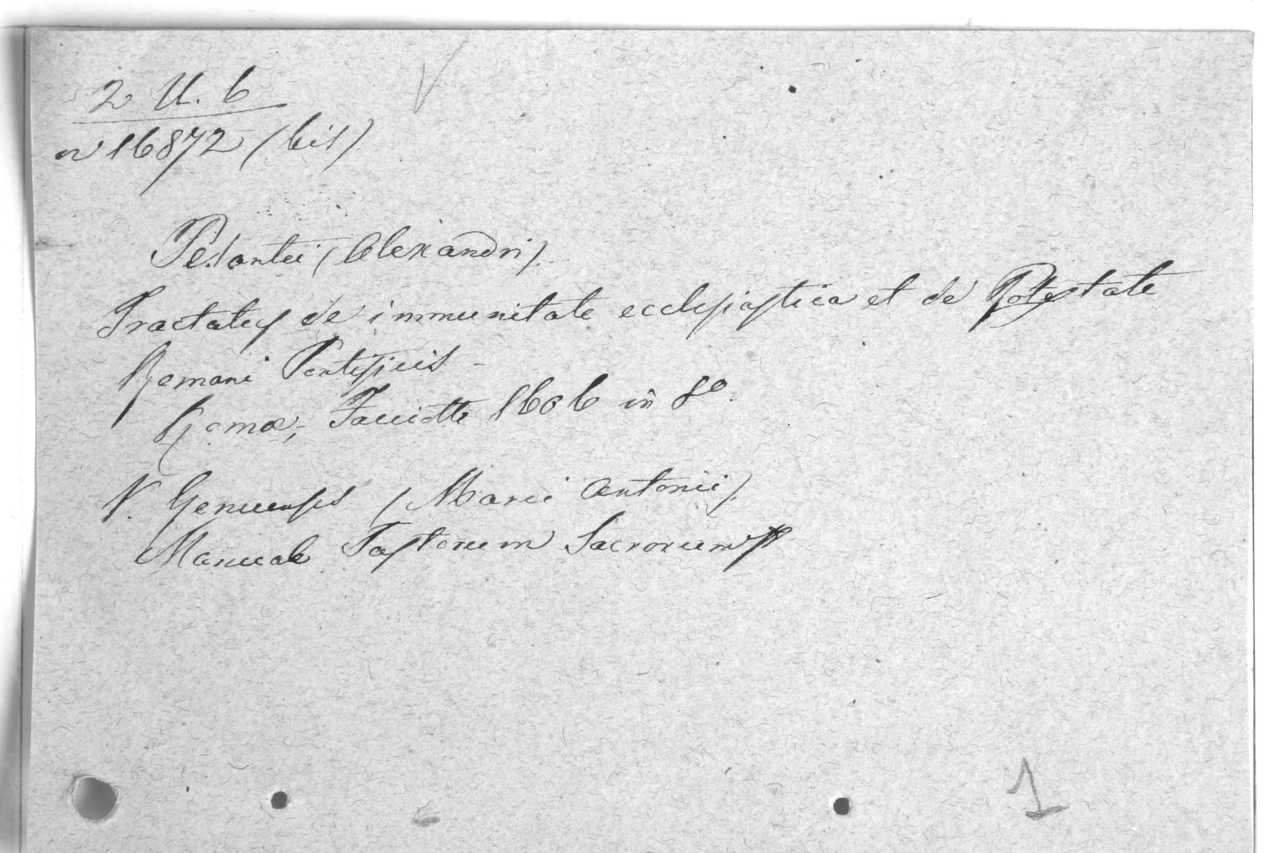 2 U. 6
n 16872 (bis)
Pesantii (Alexandri).
Tractatus de immunitate ecclesiastica et de Potestate
Romani Pontificis -
Romæ, Facciotte 1606 in 8°.
V. Genuensis (Marci Antonii)
Manuale Pastorum Sacrorum
1